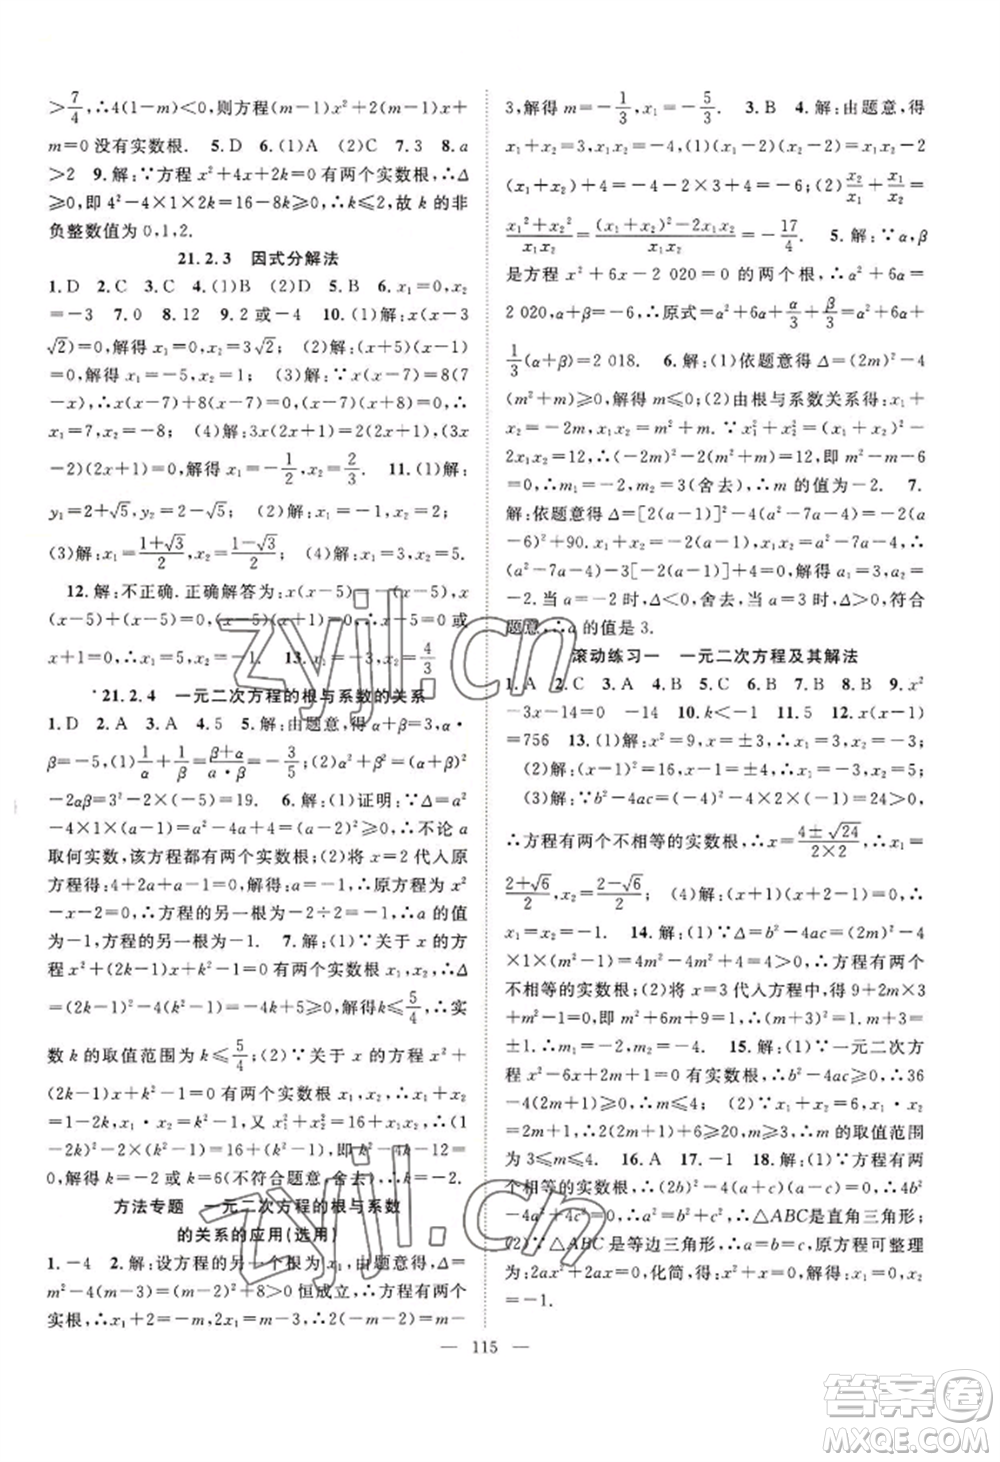 >7/4,∴4(1-m)<0,则方程(m-1)x²+2(m-1)x+
m=0没有实数根. 5.D 6.(1)A (2)C 7.3 8.a
>2 9.解:∵方程x²+4x+2k=0有两个实数根,∴Δ
≥0,即4²-4×1×2k=16-8k≥0,∴k≤2,故k的非
负整数值为0,1,2.
21.2.3 因式分解法
1.D 2.C 3.C 4.(1)B (2)D 5.B 6.x₁=0,x₂
=-3 7.0 8.12 9.2或-4 10.(1)解:x(x-3
√2)=0,∴x₁=0,x₂=3√2; (2)解:(x+5)(x-1)
=0,解得x₁=-5,x₂=1; (3)解:∵x(x-7)=8(7
-x),∴x(x-7)+8(x-7)=0,∴(x-7)(x+8)=0,∴
x₁=7,x₂=-8; (4)解:3x(2x+1)=4x+2,(3x
-2)(2x+1)=0,解得x₁=-1/2,x₂=2/3. 11.(1)解:
y₁=2+√5,y₂=2-√5; (2)解:x₁=5,x₂=-5;
(3)解:x₁=(1+√3)/2,x₂=(1-√3)/2; (4)解:x₁=3,x₂=5.
12.解:不正确.正确解答:x(x-5)+(x-5)=0,
x(x-5)+(x-5)=0,(x-5)(x+1)=0,∴x-5=0或
x+1=0,∴x₁=5,x₂=-1. 13.-6或-4/3
21.2.4 一元二次方程的根与系数的关系
1.D 2.A 3.A 4.5 5.解:由题意,得α+β=3,α·
β=-5,(1)1/α+1/β=(β+α)/(α·β)=-3/5;(2)α²+β²=(α+β)²
-2αβ=3²-2×(-5)=19. 6.解:(1)证明:∵Δ=a²
-4×1×(a-1)=a²-4a+4=(a-2)²≥0,∴不论a
取何实数,该方程都有两个实数根;(2)将x=2代入原
方程得:4+2a+a-1=0,解得a=-1,∴原方程为x²
-x-2=0,∴方程的另一根为-2÷2=-1,∴a的值
为-1,方程的另一根为-1. 7.解:(1)∵关于x的方
程x²+(2k-1)x+k²-1=0有两个实数根x₁,x₂,∴Δ
=(2k-1)²-4(k²-1)=-4k+5≥0,解得k≤5/4,∴实
数k的取值范围为k≤5/4;(2)∵关于x的方程x²+
(2k-1)x+k²-1=0有两个实数根x₁,x₂,∴x₁+x₂
=1-2k,x₁·x₂=k²-1,又x₁²+x₂²=16+x₁x₂,∴(1
-2k)²-2×(k²-1)=16+(k²-1),即k²-4k-12=
0,解得k=-2或k=6(不符合题意,舍去),∴k=-2.
方法专题 一元二次方程的根与系数
的关系的应用(选用)
1.-4 2.解:设方程的另一根为x₁,∵Δ=
m²-4(m-3)=(m-2)²+8>0恒成立,∴方程有两个
实根,∴x₁+2=-m,2x₁=m-3,∴2(-m-2)=m-
3,解得m=-1/3,x₁=-5/3. 3.B 4.解:由题意,得
x₁+x₂=-1,x₁x₂=-4,∴(1)x₁+x₂-x₁x₂-2(
x₁+x₂)+4=-4-2×(-1)+4=-6;(2)x₂/x₁+x₁/x₂=
(x₁²+x₂²)/(x₁x₂)=((x₁+x₂)²-2x₁x₂)/(x₁x₂)=-17/4. 5.解:∵α,β
是方程x²+x-2 020=0的两个根,∴α²+α=
2 020,α+β=-6,∴原式=α²+α+α/3+β/3=α²+α+
1/3(α+β)=2 018. 6.解:依题意得Δ=(2m)²-4
(m²+m)≥0,解得m≤0;由根与系数关系得:x₁+
x₂=-2m,x₁x₂=m²+m,∵x₁²+x₂²=12,∴(x₁+
x₂)²-2x₁x₂=12,∴(-2m)²-2(m²+m)=12,解
得,∴m₁=-2,m₂=3(舍去),∴m的值为-2. 7.
解:依题意得Δ=[2(a-1)]²-4(a²-7a-4)=(a
-2)(a-1),x₁x₂=a²-7a-4,∴
(a²-7a-4)-3[-2(a-1)]-2=0,解得a₁=3,a₂=
-2.当a=-2时,Δ<0,舍去,当a=3时,Δ>0,符合
题意,∴a的值是3.
滚动练习一 一元二次方程及其解法
1.A 2.C 3.A 4.B 5.C 6.C 7.C 8.B 9.x²
-3x-14=0 -14 10.k<-1 11.5 12.x(x-1)
=756 13.(1)解:x²=9,x=±3,∴x₁=3,x₂=-3;
(2)解:(x-1)²=4,x-1=±2,∴x₁=3,x₂=-1;
(3)解:∵b²-4ac=(-4)²-4×2×(-1)=24>0,
∴方程有两个不相等的实数根,∴x=(4±√24)/(2×2),∴x₁=
(2+√6)/2,x₂=(2-√6)/2; (4)解:(x+1)(x+1-2)=0,
x₁=1,x₂=-1. 14.解:(1)∵Δ=b²-4ac=(2m)²
-4×1×(m²-1)=4>0,∴方程有两个
不相等的实数根;(2)将x=3代入方程中,得9+2m×3
+m²-1=0,即m²+6m+9=1,∴(m+3)²=1.∴m+3=
±1.∴m₁=-2,m₂=-4. 15.解:(1)∵一元二次方
程x²-6x+(2m+1)=0有两个实数根,∴Δ≥0,∴36
-4(2m+1)≥0,∴m≤4;(2)∵x₁+x₂=6,x₁x₂=
2m+1,∴2(2m+1)+6≥20,∴m≥3,∴m的取值范围
为3≤m≤4. 16.A 17.-1 18.解:(1)∵方程有两个
相等的实数根,∴(2b)²-4(a+c)(a-c)=0,∴4b²
-4a²+4c²=0,∴a²=b²+c²,∴△ABC是直角三角形;
(2)∵△ABC是等边三角形,∴a=b=c,原方程可化
为:2ax²+2ax=0,化简,得x²+x=0,∴x₁=0,x₂
=-1.
— 115 —
zyjl.cn
zyjl.cn
答案圈
MXQE.COM